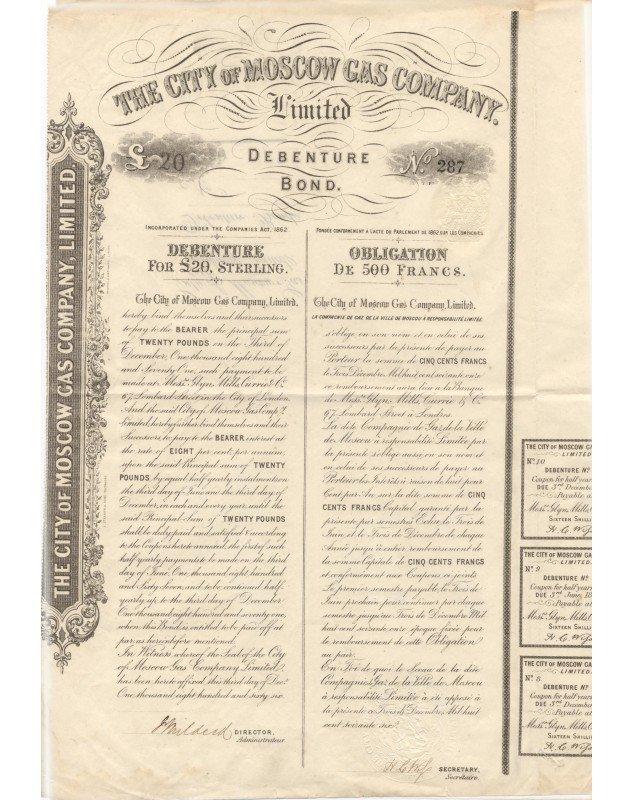 THE CITY OF MOSCOW GAS COMPANY.
Limited
£ 20
DEBENTURE
BOND.
No. 287
THE CITY OF MOSCOW GAS COMPANY, LIMITED
INCORPORATED UNDER THE COMPANIES ACT, 1862.
DEBENTURE
FOR £20, STERLING.
The City of Moscow Gas Company, Limited,
hereby bind themselves and their successors
to pay to the BEARER the principal sum
of TWENTY POUNDS on the Third of
December, One thousand eight hundred
and Seventy One, such payment to be
made at Messrs. Glyn, Mills, Currie & Co.
67, Lombard Street in the City of London.
And the said City of Moscow Gas Comp.y
Limited, hereby further bind themselves and their
Successors to pay to the BEARER interest at
the rate of EIGHT per cent. per annum
upon the said Principal Sum of TWENTY
POUNDS by equal half yearly instalments on
the third day of June and the third day of
December, in each and every year, until the
said Principal Sum of TWENTY POUNDS
shall be duly paid and satisfied & according
to the Coupons hereto annexed, the first of such
half yearly payments to be made on the third
day of June, One thousand eight hundred
and Sixty Seven, and to be continued half
yearly up to the third day of December
One thousand eight hundred and seventy one,
when this Bond is entitled to be paid off at
par as hereinbefore mentioned.
In Witness whereof the Seal of the City
of Moscow Gas Company Limited
has been hereto affixed this third day of Dec.
One thousand eight hundred and sixty six.
DIRECTOR,
Administrateur.
FONDÉE CONFORMÉMENT A L'ACTE DU PARLEMENT DE 1862 SUR LES COMPAGNIES.
OBLIGATION
DE 500 FRANCS.
The City of Moscow Gas Company, Limited.
LA COMPAGNIE DE GAZ DE LA VILLE DE MOSCOU A RESPONSABILITÉ LIMITÉE.
s'oblige en son nom et en celui de ses
successeurs par la présente de payer au
Porteur la somme de CINQ CENTS FRANCS
le Trois Décembre Mil huit cent soixante onze
ce remboursement aura lieu à la Banque
de Messrs. Glyn, Mills, Currie & Co.
67, Lombard Street à Londres.
La dite Compagnie de Gaz de la Ville
de Moscou à responsabilité Limitée par
la présente s'oblige aussi en son nom et
en celui de ses successeurs de payer au
Porteur les Intérêts à raison de huit pour
Cent par An sur la dite somme de CINQ
CENTS FRANCS Capital garanti par la
présente par semestre Echu le Trois de
Juin et le Trois de Décembre de chaque
Année jusqu'à entier remboursement de
la somme Capitale de CINQ CENTS FRANCS
et conformément aux Coupons ci joints.
Le premier semestre payable le Trois de
Juin prochain pour continuer par chaque
semestre jusqu'au Trois de Décembre Mil
huit cent soixante onze époque fixée pour
le remboursement de cette Obligation
au pair.
En Foi de quoi le Sceau de la dite
Compagnie de Gaz de la Ville de Moscou
à responsabilité Limitée à été apposé à
la présente ce Trois de Décembre, Mil huit
cent soixante six.
SECRETARY,
Secrétaire.
THE CITY OF MOSCOW GA
LIMITED
No. 10
DEBENTURE No
Coupon for half year
DUE 3RD December
Payable at
Messrs. Glyn, Mills, C
SIXTEEN SHILLI
THE CITY OF MOSCOW GA
LIMITED
No. 9
DEBENTURE No
Coupon for half year
DUE 3RD June, 18
Payable at
Messrs. Glyn, Mills, C
SIXTEEN SHILLI
THE CITY OF MOSCOW GA
LIMITED
No. 8
DEBENTURE No
Coupon for half year
DUE 3RD December
Payable at
Messrs. Glyn, Mills, C
SIXTEEN SHILLI